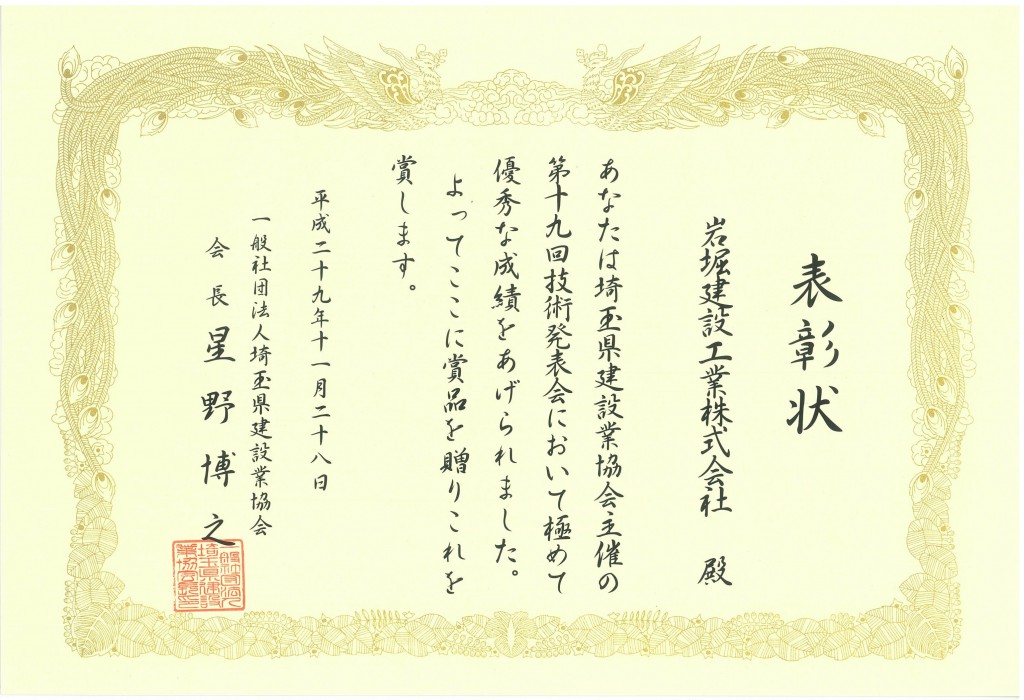 表彰状
岩堀建設工業株式会社　殿
あなたは埼玉県建設業協会主催の
第十九回技術発表会において極めて
優秀な成績をあげられました。
よってここに賞品を贈りこれを
賞します。
平成二十九年十一月二十八日
一般社団法人埼玉県建設業協会
会長　星野博之